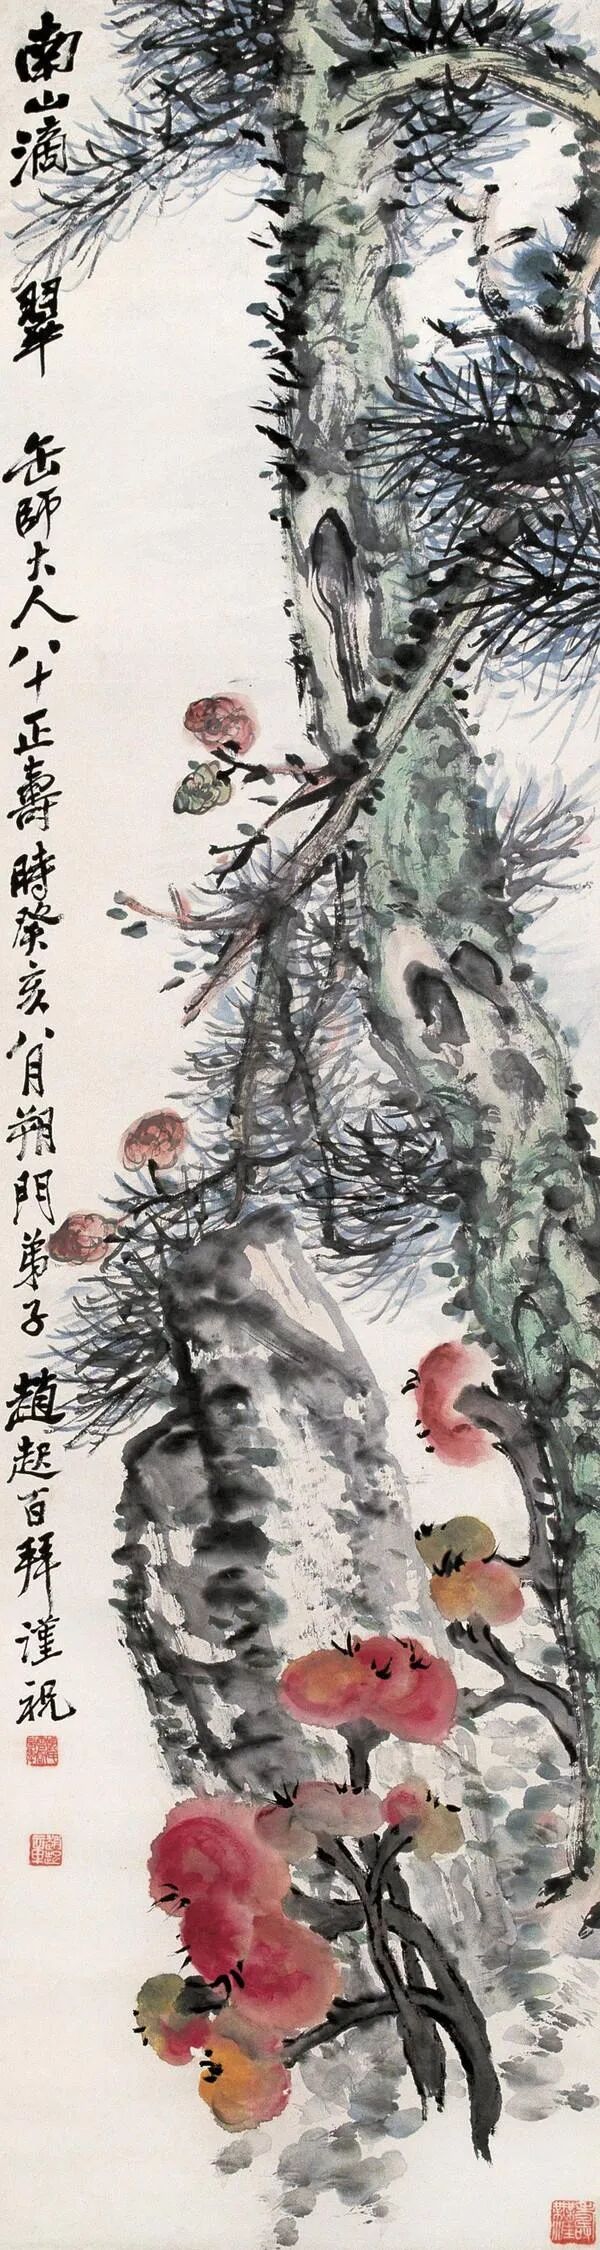 南山滴翠 缶師大人八十正壽時癸亥八月朔門弟子趙起百拜謹祝